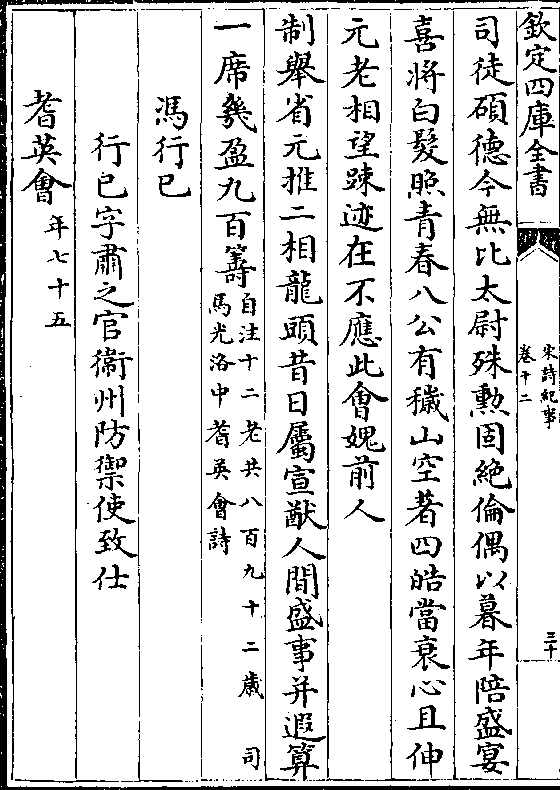 欽定四庫全書
宋詩紀事
卷十二
三十
司徒碩德今無比太尉殊勲固絶倫偶以暮年陪盛宴
喜將白髮照青春八公有穢山空著四皓當衰心且伸
元老相望踈迹在不應此會媿前人
制舉省元推二相龍頭昔日屬宣猷人間盛事并遐算
一席㡬盈九百籌自注十二老共八百九十二歲 司
馬光洛中耆英會詩
馮行已
行已字肅之官衞州防禦使致仕
耆英會年七十五